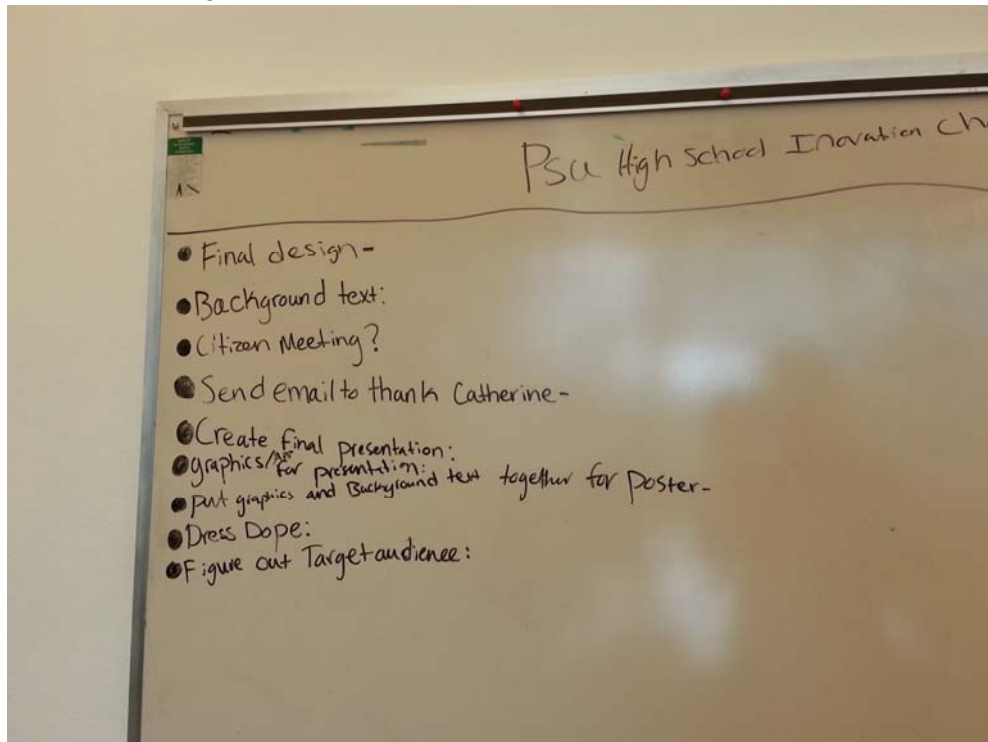 Psu High School Inovation Ch
• Final design-
• Background text:
• Citizen Meeting?
• Send email to thank Catherine-
• Create final presentation:
• graphics/Art for presentation:
• put graphics and Background text together for poster-
• Dress Dope:
• Figure out Target audience: